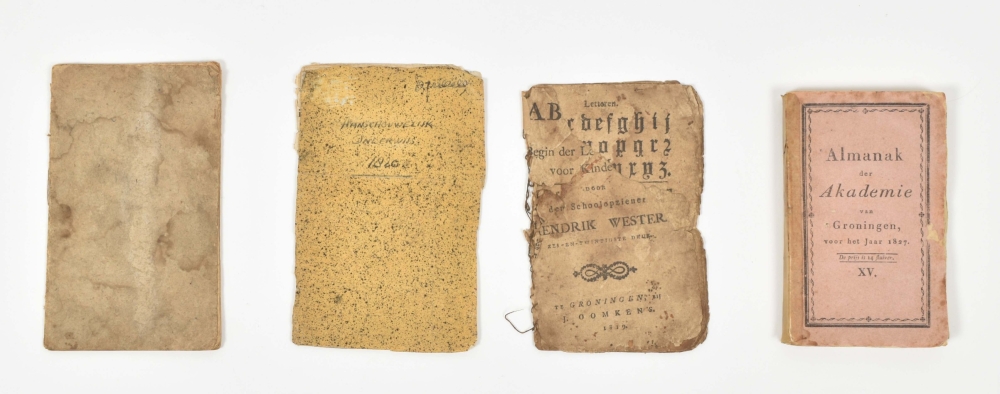 AANSCHOUWELIJK
ONDERWIJS
1860
Letteren.
AB
cdefghij
Begin der L opqrz
voor Kinde rxyz.
DOOR
den Schoolopziener
HENDRIK WESTER.
TE GRONINGEN, bij
J. OOMKENS.
1829.
Almanak
der
Akademie
van
Groningen,
voor het Jaar 1827.
De prijs is 14 Stuiver.
XV.